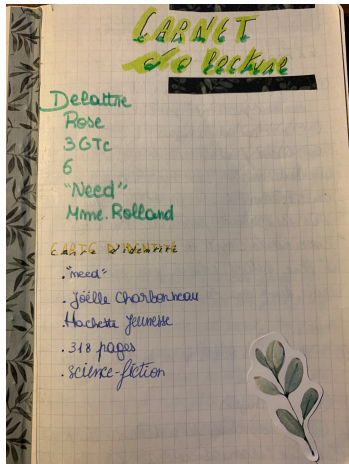 CARNET
de lecture
Delattre
Rose
3GTC
6
"Need"
Mme. Rolland
CARTE D'IDENTITÉ
."need"
. Joëlle Charbonneau
.Hachette Jeunesse
.318 pages
.science-fiction